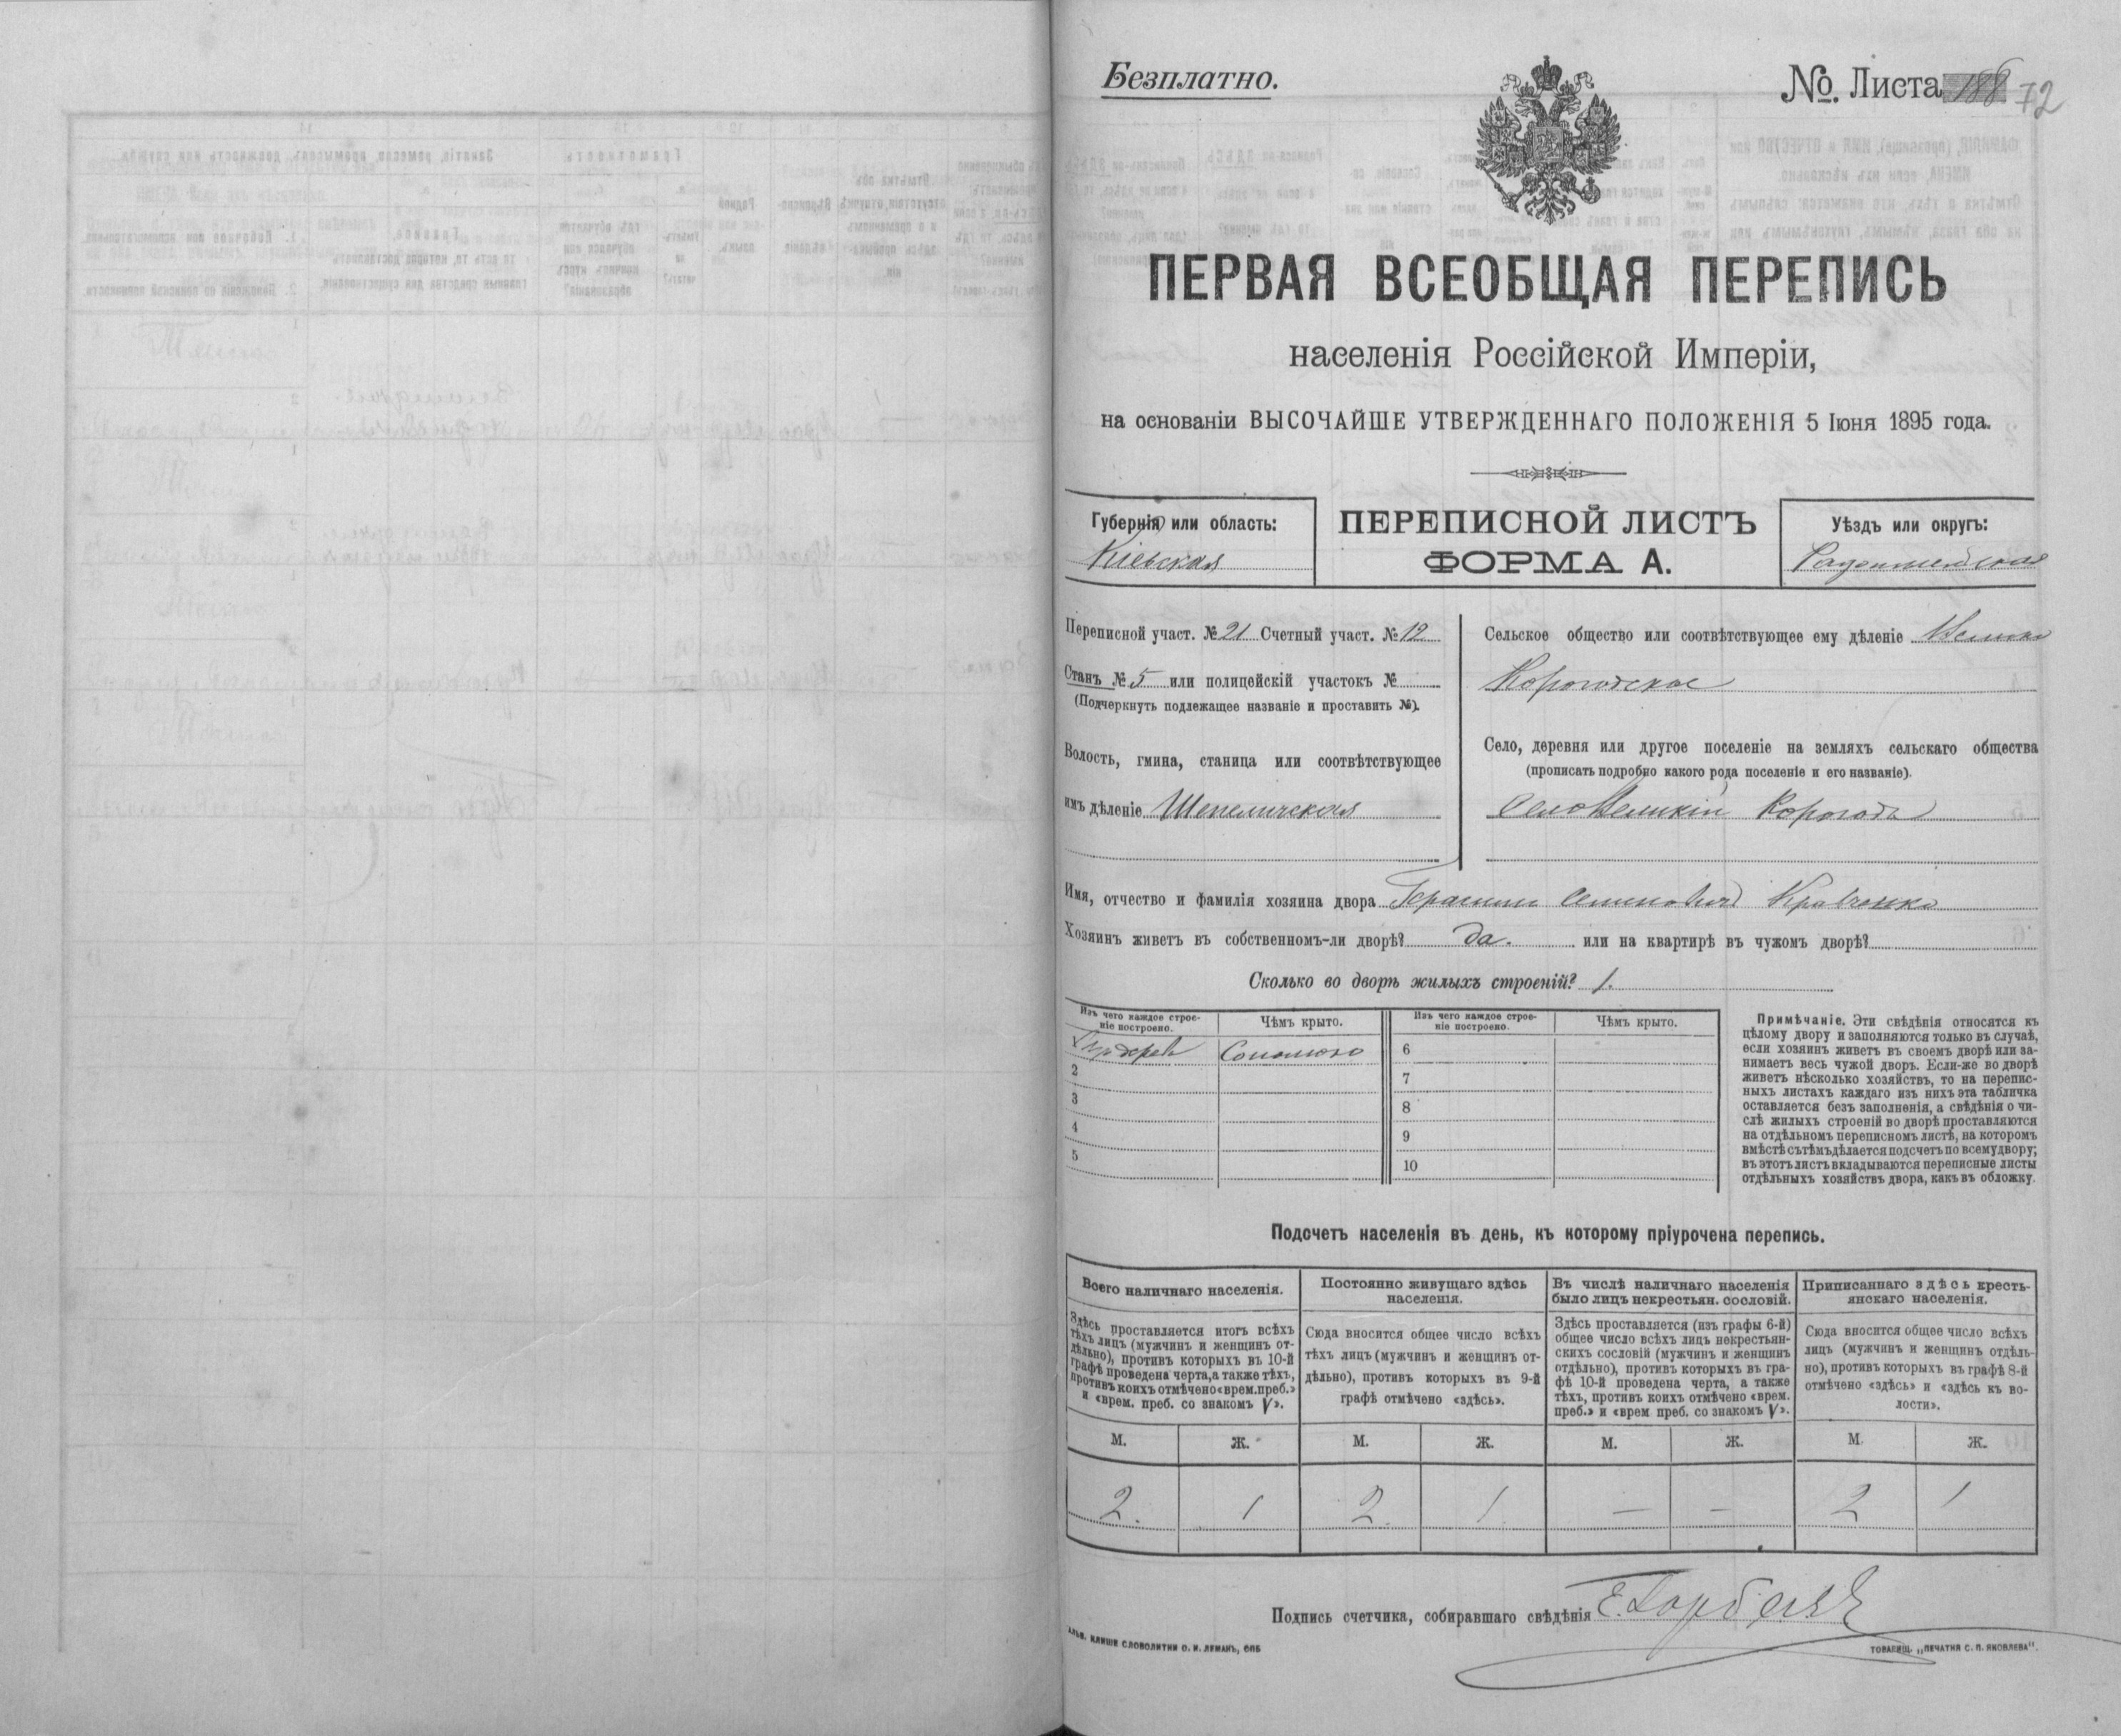 Безплатно.
№ Листа 188 72
ПЕРВАЯ ВСЕОБЩАЯ ПЕРЕПИСЬ
населенія Россійской Имперіи,
на основаніи ВЫСОЧАЙШЕ УТВЕРЖДЕННАГО ПОЛОЖЕНІЯ 5 Іюня 1895 года.
Губернія или область:
Кіевская
ПЕРЕПИСНОЙ ЛИСТЪ
ФОРМА А.
Уѣздъ или округъ:
Переписной участ. № 21 Счетный участ. № 12
Станъ № 5 или полицейскій участокъ №
(Подчеркнуть подлежащее названіе и проставить №).
Волость, гмина, станица или соотвѣтствующее
имъ дѣленіе Шепеличская
Сельское общество или соотвѣтствующее ему дѣленіе Велико
Корогодское
Село, деревня или другое поселеніе на земляхъ сельскаго общества
(прописать подробно какого рода поселеніе и его названіе).
Село Великій Корогодъ
Имя, отчество и фамилія хозяина двора Герасим Семиновичъ Кравченко
Хозяинъ живетъ въ собственномъ-ли дворѣ? да. или на квартирѣ въ чужомъ дворѣ?
Сколько во дворѣ жилыхъ строеній? 1.
Изъ чего каждое строе-
ніе построено.
Чѣмъ крыто.
Изъ чего каждое строе-
ніе построено.
Чѣмъ крыто.
1 Соломою 6
2 7
3 8
4 9
5 10
Примѣчаніе. Эти свѣдѣнія относятся къ
цѣлому двору и заполняются только въ случаѣ,
если хозяинъ живетъ въ своемъ дворѣ или за-
нимаетъ весь чужой дворъ. Если-же во дворѣ
живетъ нѣсколько хозяйствъ, то на перепис-
ныхъ листахъ каждаго изъ нихъ эта табличка
оставляется безъ заполненія, а свѣдѣнія о чи-
слѣ жилыхъ строеній во дворѣ проставляются
на отдѣльномъ переписномъ листѣ, на которомъ
вмѣстѣ съ тѣмъ дѣлается подсчетъ по всему двору;
въ этотъ листъ вкладываются переписные листы
отдѣльныхъ хозяйствъ двора, какъ въ обложку.
Подсчетъ населенія въ день, къ которому пріурочена перепись.
Всего наличнаго населенія.
Здѣсь проставляется итогъ всѣхъ
тѣхъ лицъ (мужчинъ и женщинъ от-
дѣльно), противъ которыхъ въ 10-й
графѣ проведена черта, а также тѣхъ,
противъ коихъ отмѣчено «врем. преб.»
и «врем. преб. со знакомъ V».
Постоянно живущаго здѣсь
населенія.
Сюда вносится общее число всѣхъ
тѣхъ лицъ (мужчинъ и женщинъ от-
дѣльно), противъ которыхъ въ 9-й
графѣ отмѣчено «здѣсь».
Въ числѣ наличнаго населенія
было лицъ некрестьян. сословій.
Здѣсь проставляется (изъ графы 6-й)
общее число всѣхъ лицъ некрестьян-
скихъ сословій (мужчинъ и женщинъ
отдѣльно), противъ которыхъ въ гра-
фѣ 10-й проведена черта, а также
тѣхъ, противъ коихъ отмѣчено «врем.
преб.» и «врем преб. со знакомъ V».
Приписаннаго здѣсь кресть-
янскаго населенія.
Сюда вносится общее число всѣхъ
лицъ (мужчинъ и женщинъ отдѣль-
но), противъ которыхъ въ графѣ 8-й
отмѣчено «здѣсь» и «здѣсь къ во-
лости».
М. Ж. М. Ж. М. Ж. М. Ж.
2. 1 2. 1 — — 2 1
Подпись счетчика, собиравшаго свѣдѣнія
КЛИШЕ СЛОВОЛИТНИ О. И. ЛЕМАНЪ, СПБ
ТОВАРИЩ. „ПЕЧАТНЯ С. П. ЯКОВЛЕВА".